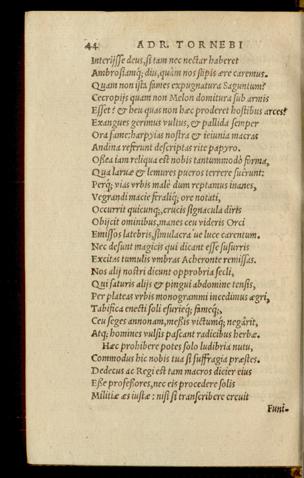 44 ADR. TORNEBI
Interijsse deus, si tam nec nectar haberet
Ambrosiamq; diu, quàm nos stipis ære caremus.
Quam non ista fames expugnatura Saguntum?
Cecropijs quam non Melon domitura sub armis
Esset? & heu quas non hæc proderet hostibus arces?
Exangues gerimus vultus, & pallida semper
Ora fame: harpyias nostra & ieiunia macras
Andina referunt descriptas rite papyro.
Ossea iam reliqua est nobis tantummodò forma,
Qua laruæ & lemures pueros terrere suërunt:
Perq; vias vrbis malè dum reptamus inanes,
Vegrandi macie feraliq; ore notati,
Occurrit quicunq;, crucis signacula diris
Obijcit ominibus, manes ceu videris Orci
Emissos latebris, simulacra ue luce carentum.
Nec desunt magicis qui dicant esse susurris
Excitas tumulis vmbras Acheronte remissas.
Nos alij nostri dicunt opprobria secli,
Qui saturis alijs & pingui abdomine tensis,
Per plateas vrbis monogrammi incedimus ægri,
Tabifica enecti soli esurieq; fameq;,
Ceu seges annonam, messis victumq; negârit,
Atq; homines vulsis pascant radicibus herbæ.
Hæc prohibere potes solo ludibria nutu,
Commodus hic nobis tua si suffragia præstes.
Dedecus ac Regi est tam macros dicier eius
Esse professores, nec eis procedere solis
Militiæ æs iustæ: nisi si transcribere crcuit
Funi-